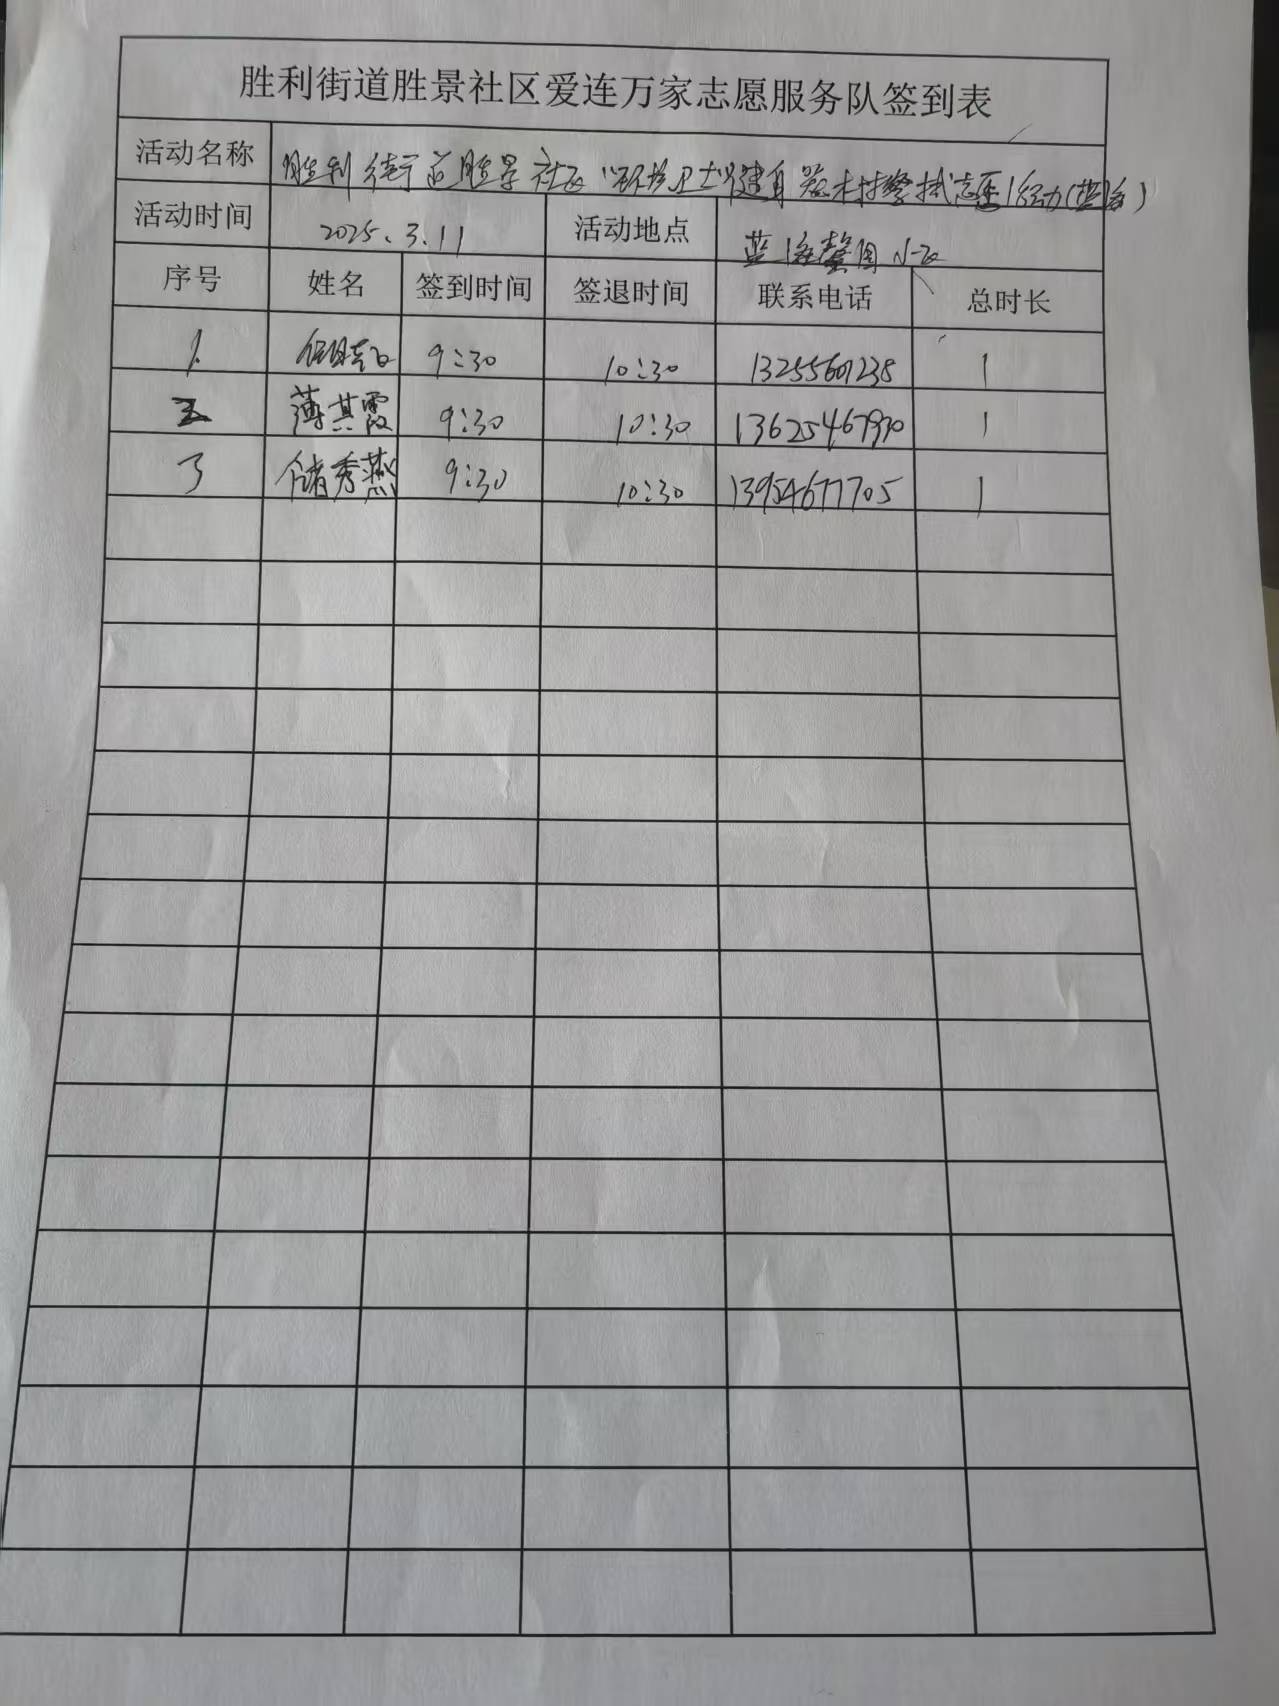 胜利街道胜景社区爱连万家志愿服务队签到表
活动名称 胜利街道胜景社区“环境卫士”健身器材擦拭志愿活动(蓝海)
活动时间 2025.3.11 活动地点 蓝海馨园小区
序号 姓名 签到时间 签退时间 联系电话 总时长
1. 9:30 10:30 1
2 薄其霞 9:30 10:30 1
3 储秀燕 9:30 10:30 13954677705 1